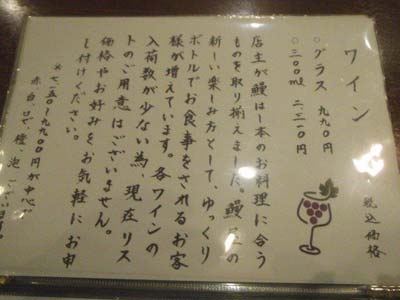 ワイン 税込価格
○グラス 九九〇円
○三〇〇ml 二、三一〇円
店主が鰻は一本のお料理に合う
ものを取り揃えました。鰻との
新しい楽しみ方として、ゆっくり
ボトルでお食事をされるお客
様が増えています。各ワインの
入荷数が少ない為、現在リス
トのご用意はございません。
価格やお好みをお気軽にお申
し付けください。
※七一五〇〜九九〇〇円が中心
赤 白 ロゼ 橙 泡 ございます。